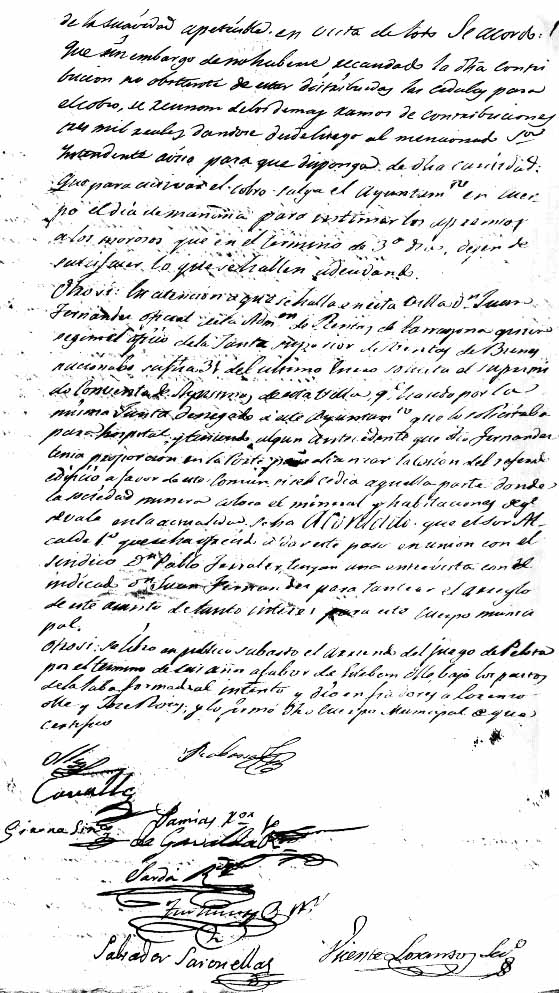 de la suavidad apetecible. en vista de todo Se acordó:
Que sin embargo de no haberse recaudado la dha contri
bucion no obstante de estar distribuidas las cedulas para
el cobro, se reunan de los demas ramos de contribuciones
tres mil reales dandose desde luego al mencionado Sor
Intendente aviso para que disponga de dha cantidad:
Que para activar el cobro salga el Ayuntamto en cuer
po el dia de mañana para
a los morosos que en el termino de 3º dia, dejen de
satisfacer lo que se hallen adeudando.
Otrosi: En atencion a que se halla en esta Villa Dn Juan
Fernandez oficial de la Admon de Rentas de Tarragona quien
segun el oficio de la Junta de Ventas de Bienes
nacionales su fha 31 del ultimo Enero solicita el suprimi
do Convento de de esta Villa, qe cedido por la
misma Junta denegado a este Ayuntamto que lo solicitaba
para hospital, y teniendo algun antecedente que dho Fernandez
tenia proporcion en la Corte para alcanzar la cesion del referido
edificio a favor de este Comun si se cedia aquella parte donde
la sociedad minera coloca el mineral y habitaciones de qe
se vale en la actualidad, se ha Acordado: que el Sor Al
calde 1º que se ha ofrecido a dar este paso en union con el
sindico Dn Pablo Ferrater, tengan una entrevista con el
indicado Dn Juan Fernandez para tantear el arreglo
de este asunto de tanto interes para este Cuerpo munici
pal.
Otrosi: Se libró en publico subasto el arriendo del juego de Pelota
por el termino de seis años a favor de Esteban Olle bajo los pactos
de la taba formada al intento y dio en fiadores a Lorenzo
Olle y Jose Roig; y lo firmó dho Cuerpo Municipal de que
certifico
Olle
Cavalle
Girona Sindo
Pamias Ror
de Gavalda Ror
Sardá Ror
Salvador Saronellas
Vicente Loranso Srio